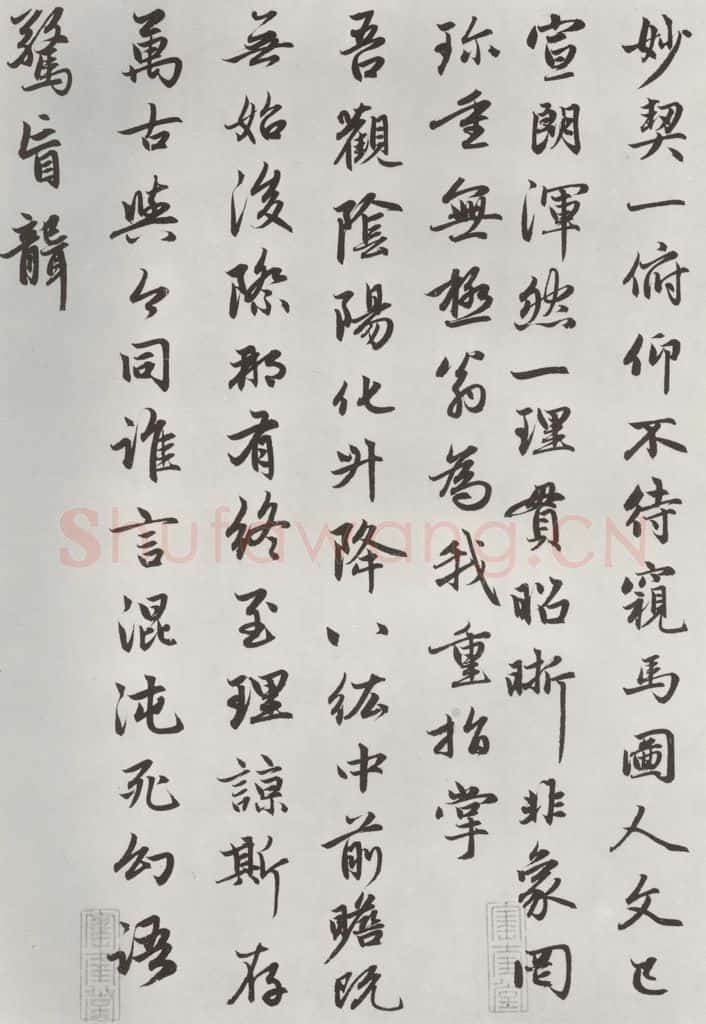 妙契一俯仰不待窺馬圖人文已
宣朗渾然一理貫昭晣非象罔
珎重無極翁為我重指掌
吾觀陰陽化升降八紘中前瞻既
無始後際那有終至理諒斯存
萬古與今同誰言混沌死幻語
驚盲聾
Shufawang.CN